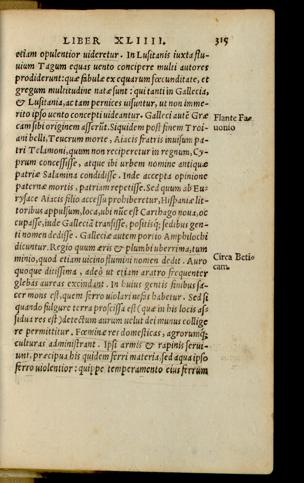 LIBER XLIIII. 315
etiam opulentior uideretur. In Lusitanis iuxta flu-
uium Tagum equas uento concipere multi autores
prodiderunt: quæ fabulæ ex equarum fœcunditate, et
gregum multitudine natæ sunt: qui tanti in Gallecia,
& Lusitania, ac tam pernices uisuntur, ut non imme-
rito ipso uento concepti uideantur. Galleci autē Græ
cam sibi originem asserūt. Siquidem post finem Troia
ni belli, Teucrum morte, Aiacis fratris inuisum pa-
tri Telamoni, quum non reciperetur in regnum, Cy-
prum concessisse, atque ibi urbem nomine antiquæ
patriæ Salamina condidisse. Inde accepta opinione
paternæ mortis, patriam repetisse. Sed quum ab Eu-
ryſace Aiacis filio accessu prohiberetur, Hispaniæ lit-
toribus appulsum, loca, ubi nūc est Carthago noua, oc
cupasse, inde Galleciā transisse, positisq; sedibus gen-
ti nomen dedisse. Galleciæ autem portio Amphilochi
dicuntur. Regio quum æris & plumbi uberrima, tum
minio, quod etiam uicino flumini nomen dedit. Auro
quoque ditissima, adeò ut etiam aratro frequenter
glebas aureas excindant. In huius gentis finibus sa-
cer mons est, quem ferro uiolari nefas habetur. Sed si
quando fulgure terra proscissa est (quæ in his locis as
sidua res est) detectum aurum uelut dei munus collige
re permittitur. Fœminæ res domesticas, agrorumq;
culturas administrant. Ipsi armis & rapinis serui-
unt. præcipua his quidem ferri materia, sed aqua ipso
ferro uiolentior: quippe temperamento eius ferrum
Flante Fa-
uonio
Circa Beti-
cam.